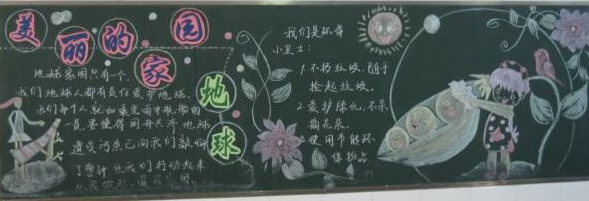 美丽的家园
地球
地球家园只有一个,
我们地球人都有责任爱护地球.
我们每个人就如
要懂得同舟共济地球
遭受污染已向我们敲响
了警钟 让我们行动起来
我们是环保
小卫士:
1.不扔垃圾,随手
捡起垃圾.
2.爱护绿化,不采
摘花朵.
3.使用节能环
保物品